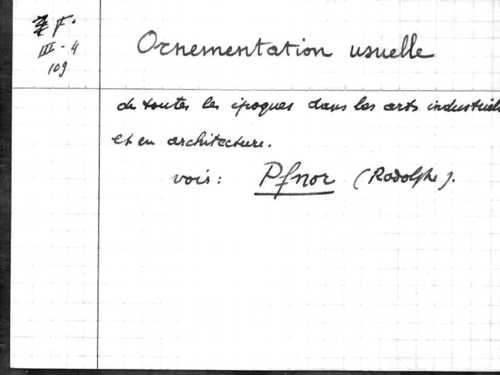 F.
III - 4
109
Ornementation usuelle
de toutes les époques dans les arts industriels
et en architecture.
voir: Pfnor (Rodolphe).